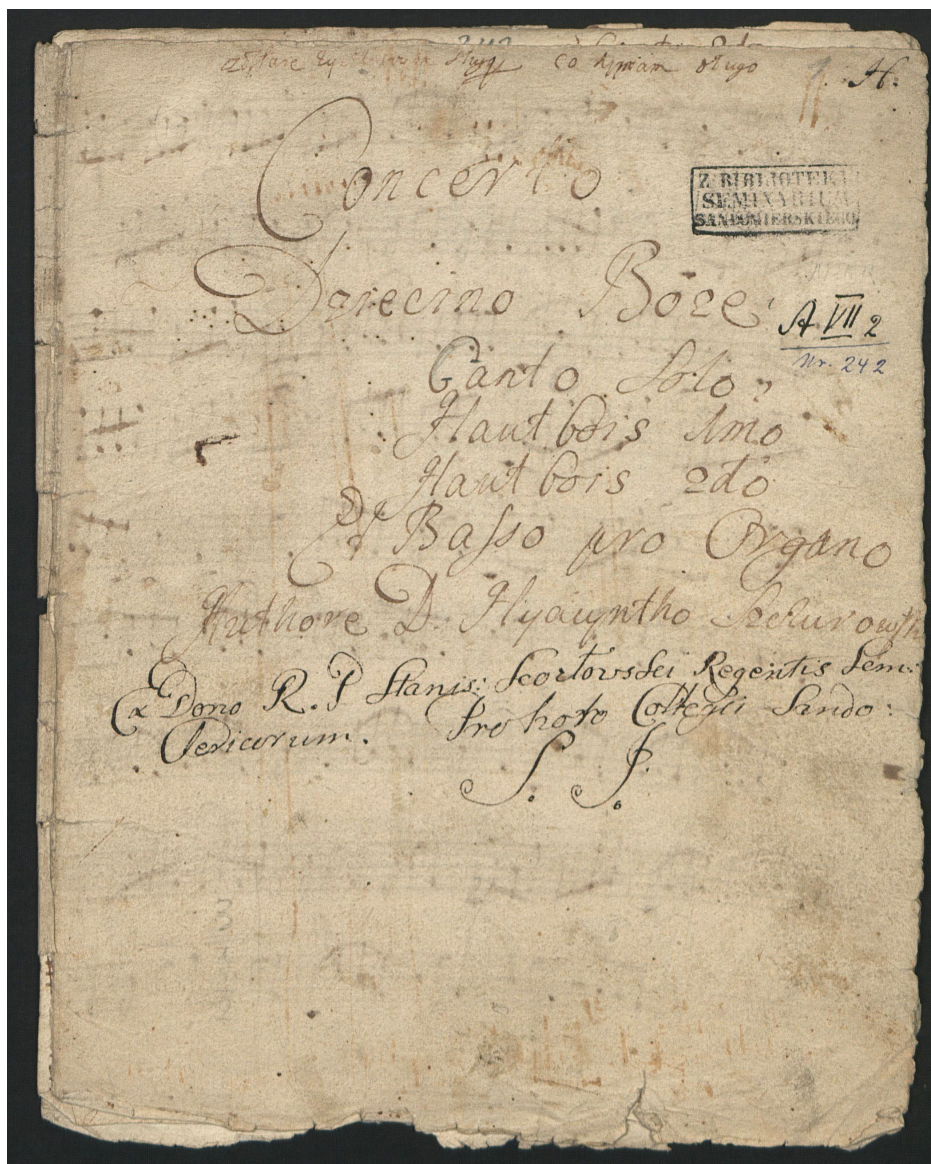 H.
Concerto
Z BIBLIJOTEKI
SEMINARIUM
SANDOMIERSKIEGO
Dziecino Boze
A VII 2
Nr. 242
Canto Solo
Hautbois 1mo
Hautbois 2do
Et Basso pro Organo
Authore D. Hyacyntho
Ex Dono R. P Stanis: Regentis Sem:
Clericorum. Pro Choro Collegii Sando:
S. J.